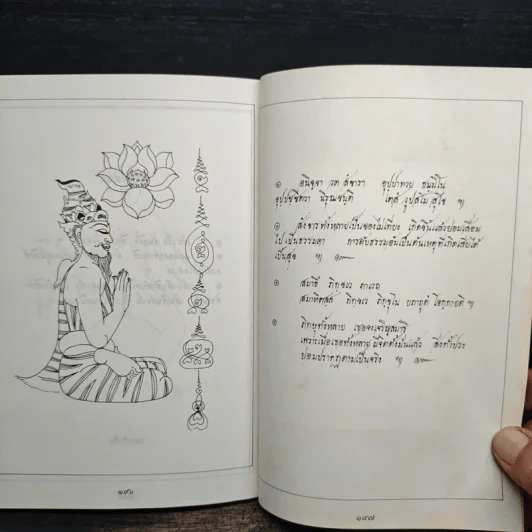 ๑๙๖
๏ อนิจจา วต สังขารา อุปปาทวย ธมมิโน
อุปปชชิตวา นิรุชฌนติ เตสํ วูปสโม สุโข ฯ
๏ สังขารทั้งหลายเป็นของไม่เที่ยง เกิดขึ้นแล้วย่อมเสื่อม
ไปเป็นธรรมดา การดับธรรมอันเป็นต้นเหตุที่เกิดเสียได้
เป็นสุข ฯ ๛
๏ สมาธึ ภิกฺขเว ภาเวถ
สมาหิตสฺส ภิกฺขเว ภิกฺขุโน ยถาภูตํ ฯ
๏ ภิกษุทั้งหลาย เธอจงเจริญสมาธิ
เพราะเมื่อเธอทั้งหลายมีจิตตั้งมั่นแล้ว สิ่งทั้งปวง
ย่อมปรากฏตามเป็นจริง ฯ ๛
๑๙๗